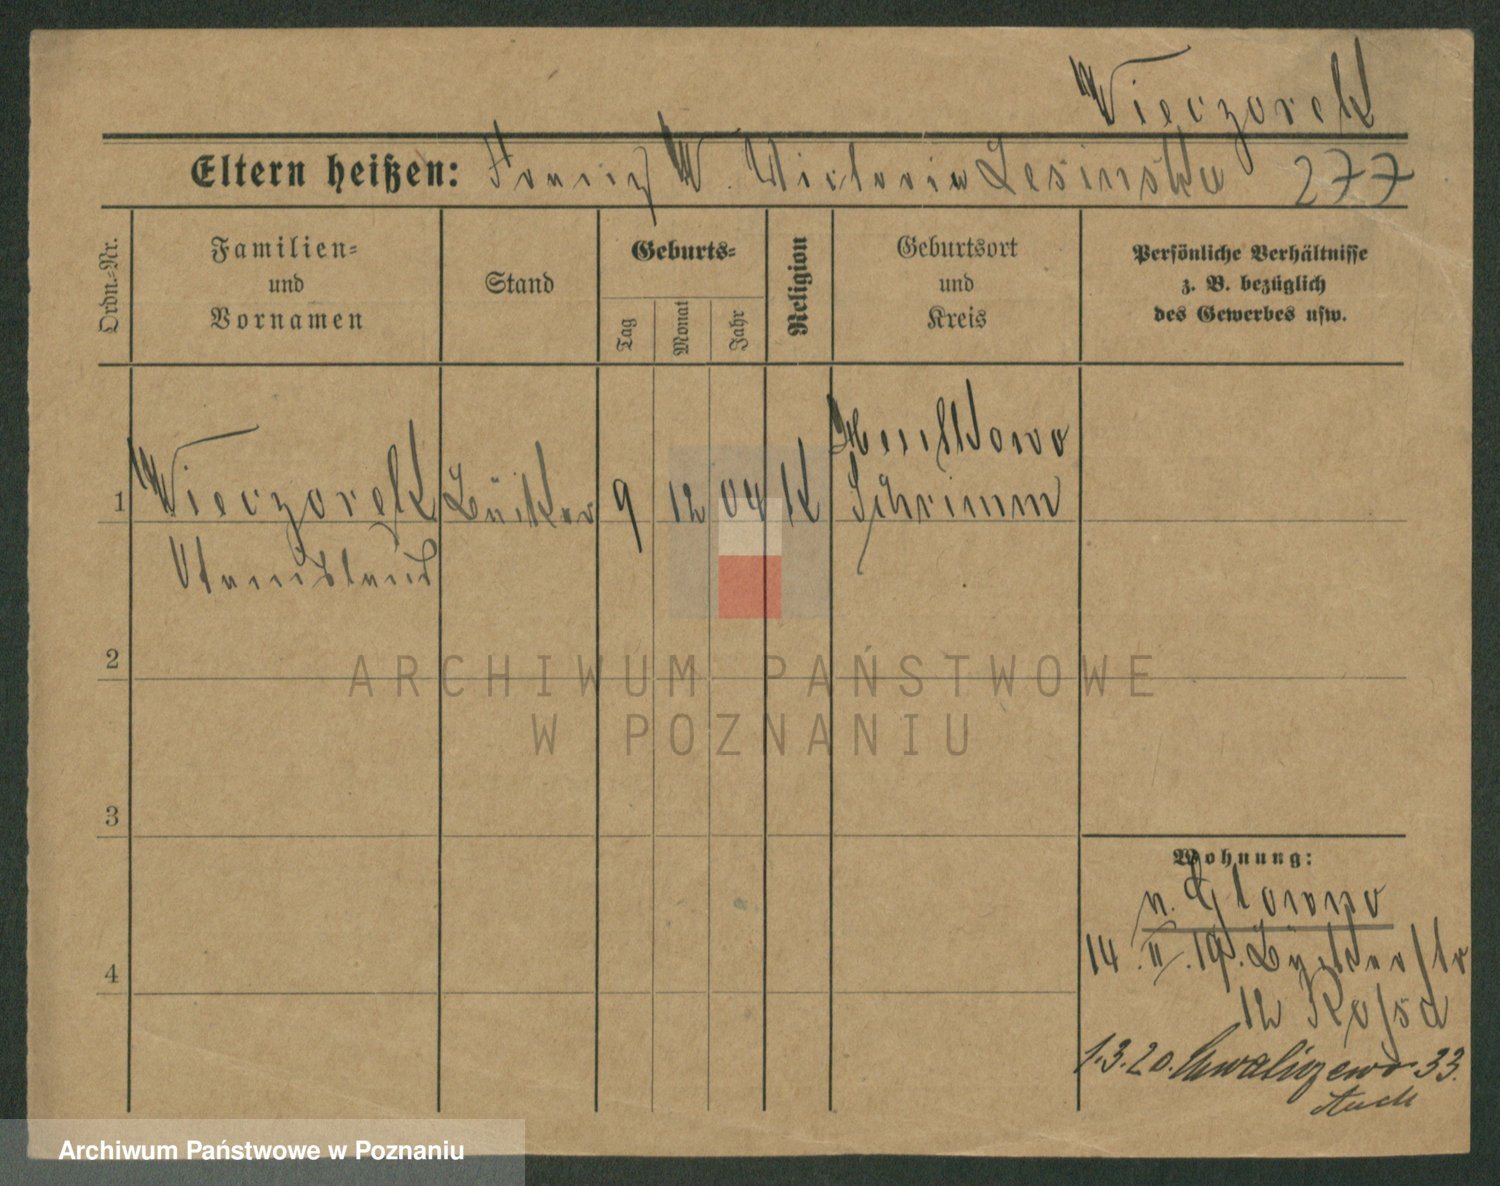 Wieczorek
Eltern heißen: Franz W. Victoria Lesinska 277
Ordn.-Nr.
Familien-
und
Vornamen
Stand
Geburts-
Tag
Monat
Jahr
Religion
Geburtsort
und
Kreis
Persönliche Verhältnisse
z. B. bezüglich
des Gewerbes usw.
1 Wieczorek 9 12 04 K
Schrimm
Stanislaus
2
3
4
Wohnung:
n. Glowno
14. II. 19. Bäckerstr
12
1.3.20. 33.
ARCHIWUM PAŃSTWOWE
W POZNANIU
Archiwum Państwowe w Poznaniu